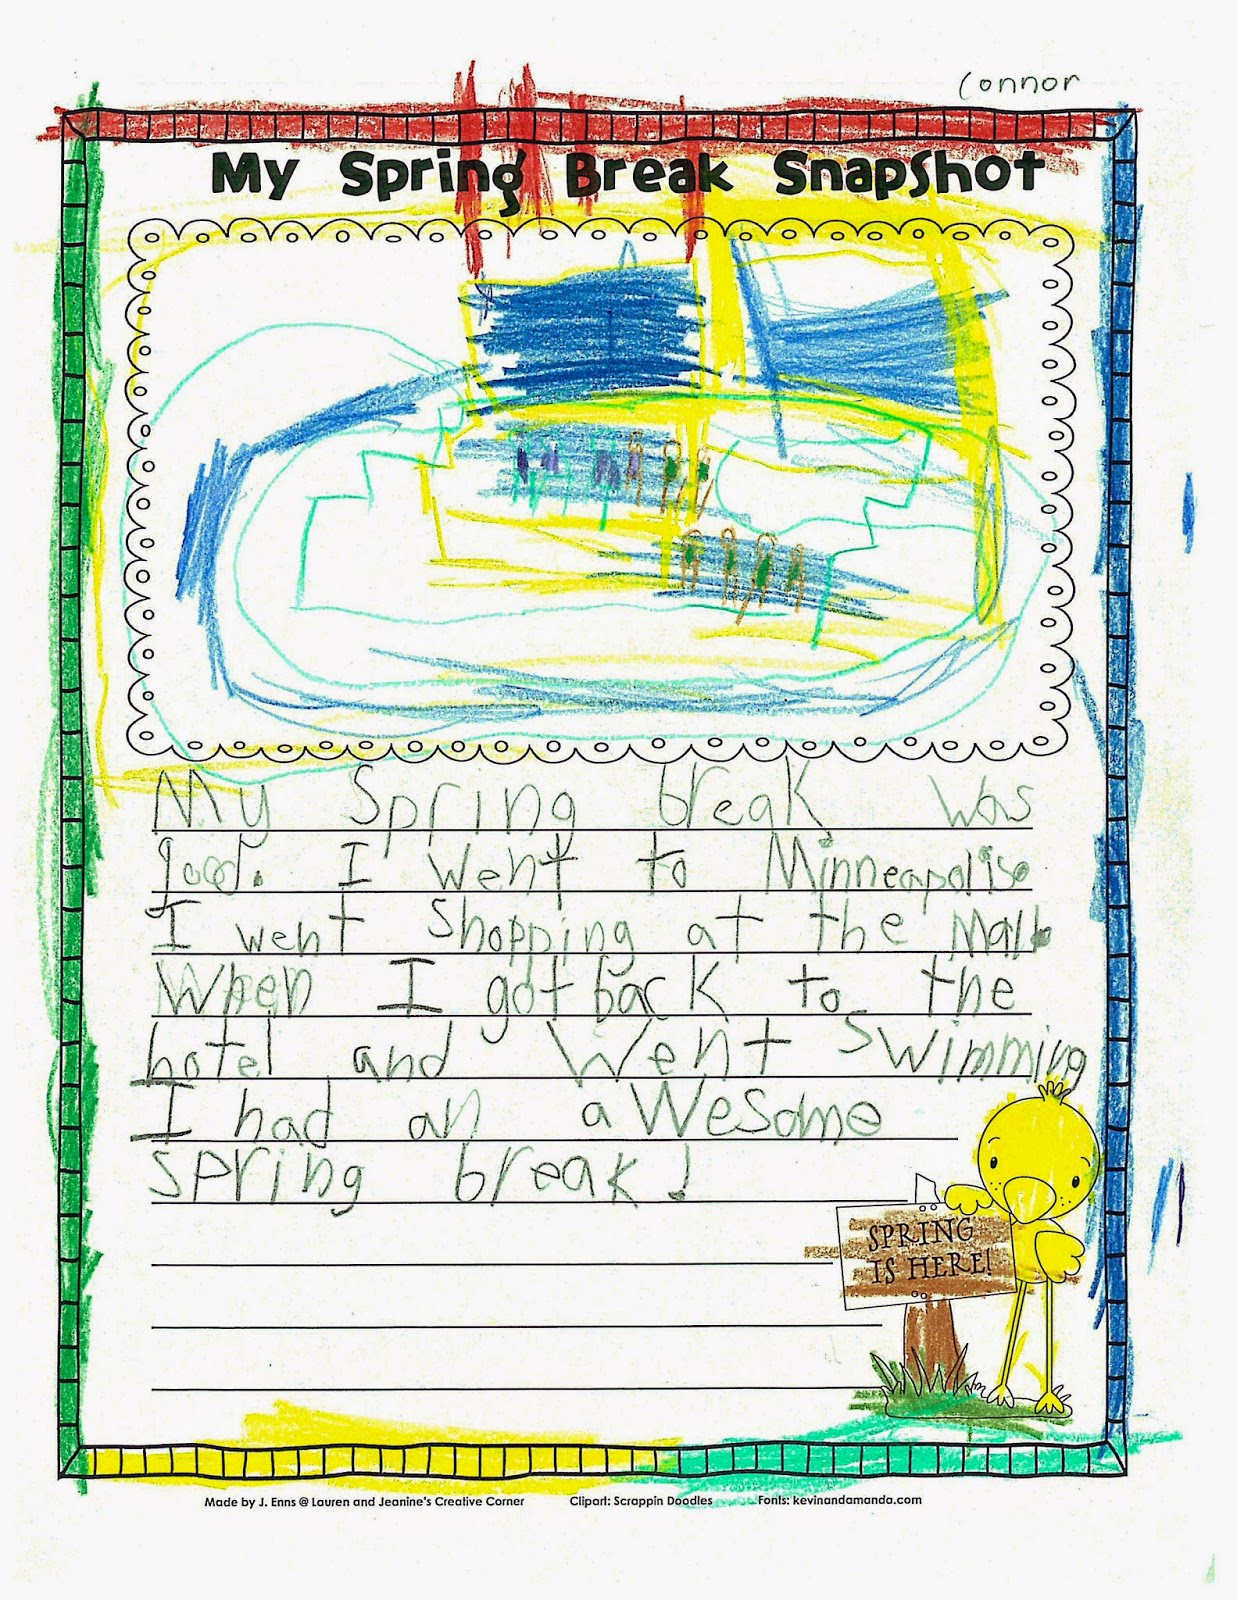 Connor
My Spring Break Snapshot
My Spring break was
good. I went to Minneapolis.
I went Shopping at the Mall.
When I got back to the
hotel and Went Swimming
I had an aWesome
spring break!
SPRING
IS HERE!
Made by J. Enns @ Lauren and Jeanine's Creative Corner Clipart: Scrappin Doodles Fonts: kevinandamanda.com